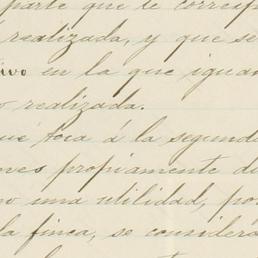 parte que le corresp
realizada, y que se
ivo en la que igua
o realizada.
ue toca á la segund
ones propiamente d
o una utilidad, po
la finca, se considera